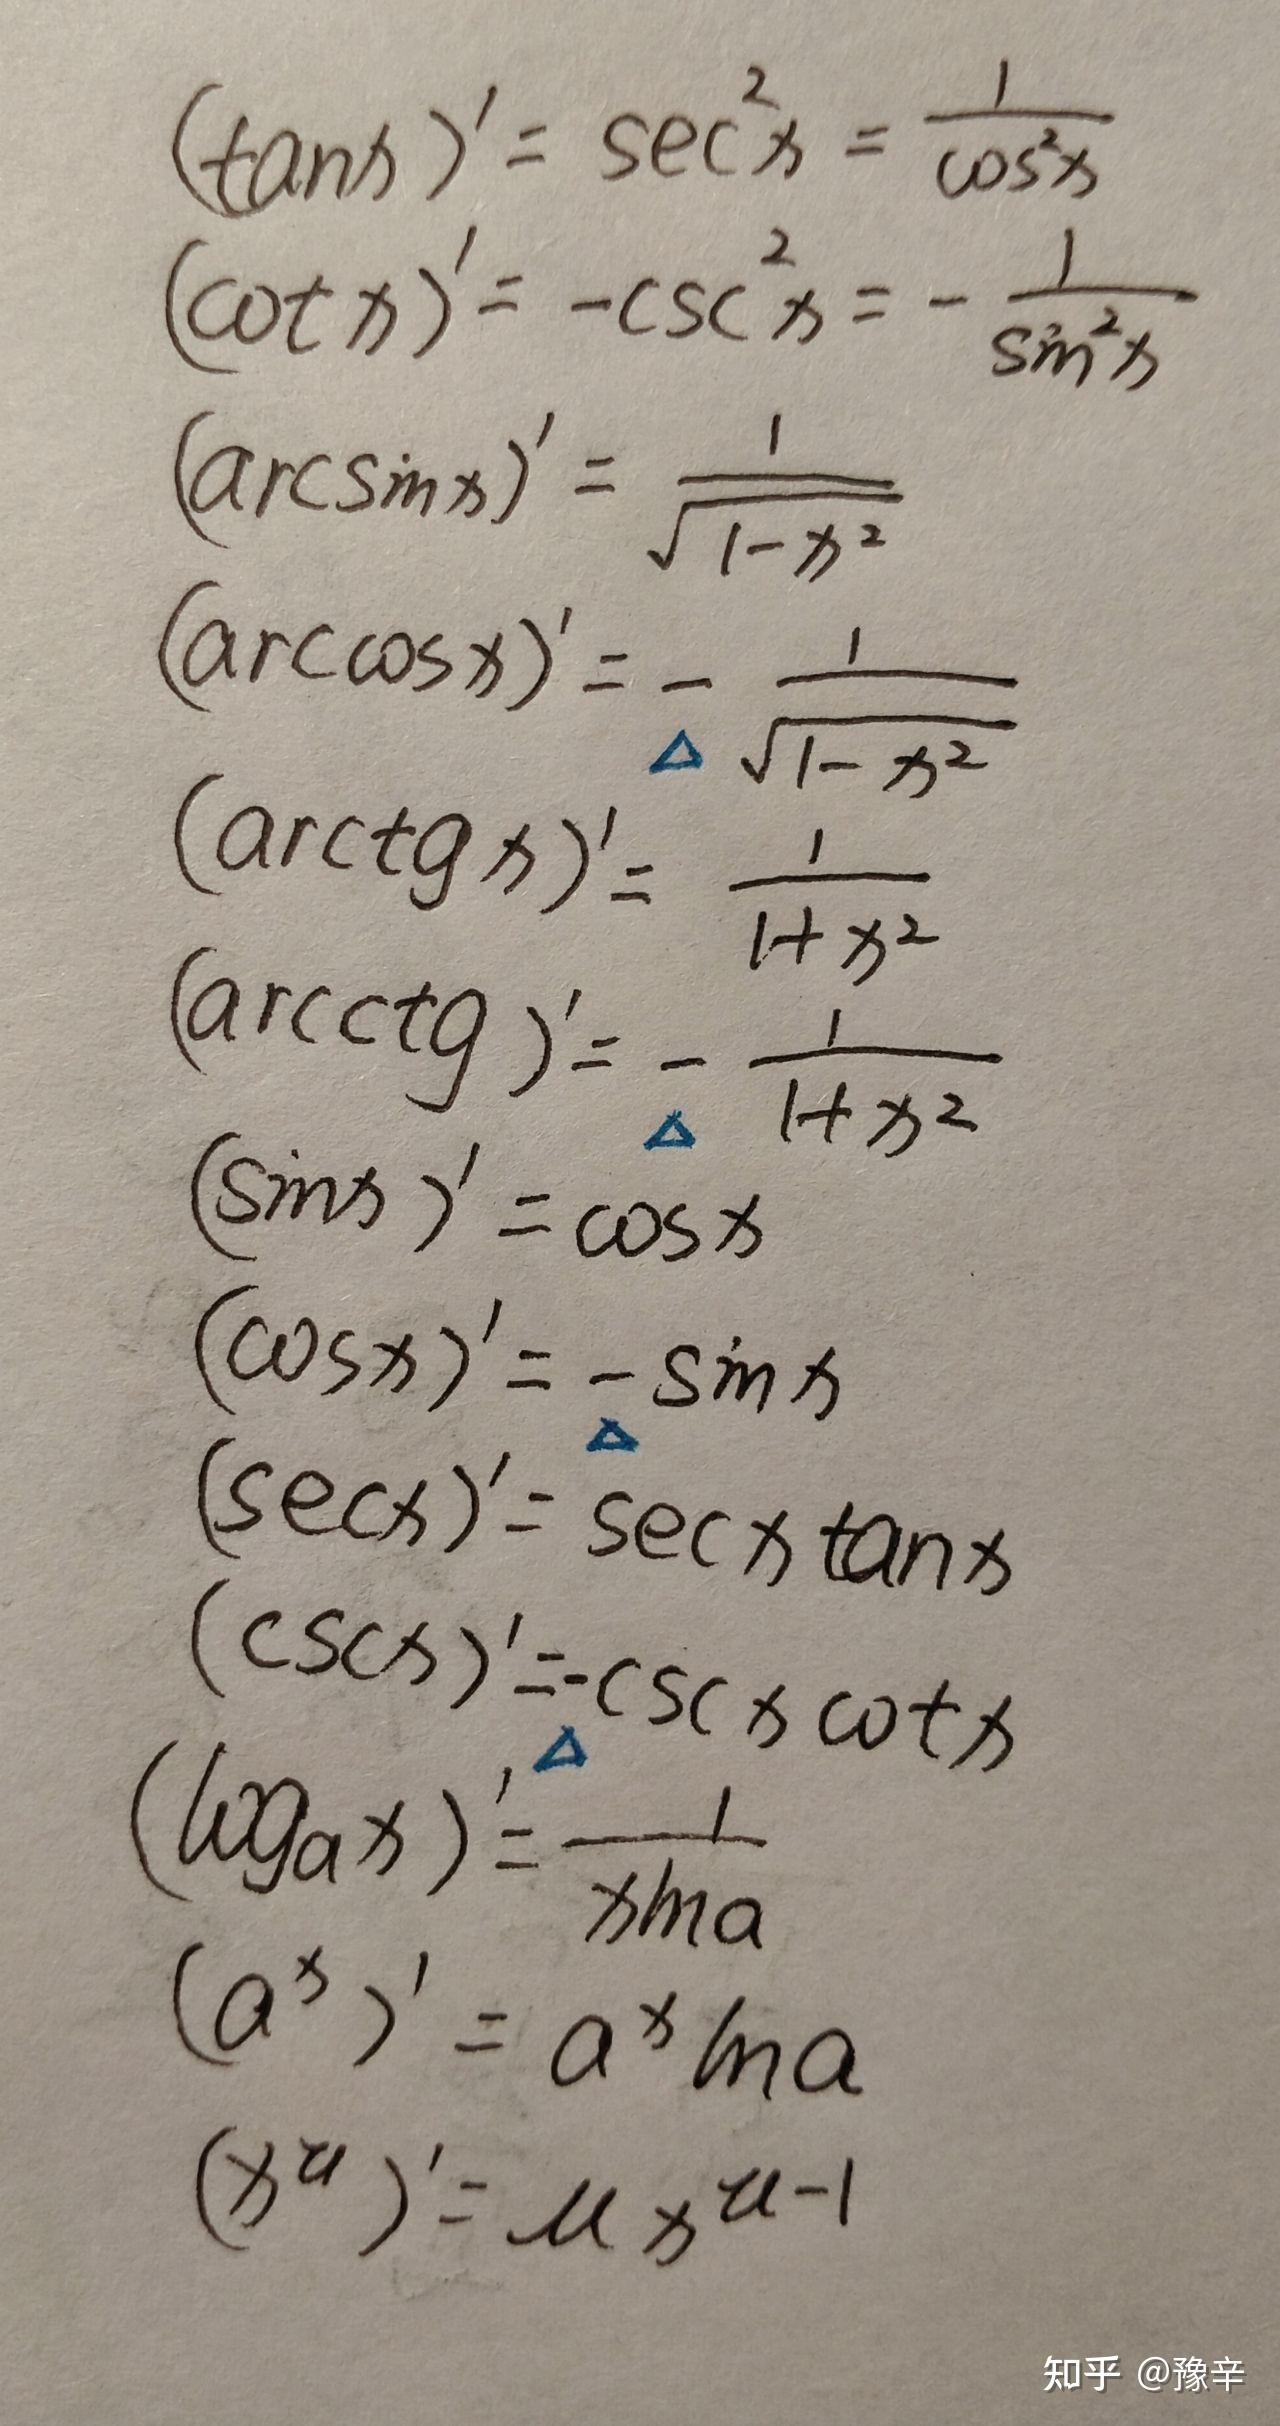 (tanx)' = sec²x = 1/cos²x
(cotx)' = -csc²x = - 1/sin²x
(arcsinx)' = 1/√(1-x²)
(arccosx)' = - 1/√(1-x²)
△
(arctgx)' = 1/(1+x²)
(arcctg)' = - 1/(1+x²)
△
(sinx)' = cosx
(cosx)' = -sinx
△
(secx)' = secxtanx
(cscx)' = -cscxcotx
△
(logₐx)' = 1/(xlna)
(aˣ)' = aˣlna
(x^μ)' = μx^(μ-1)
知乎 @豫辛